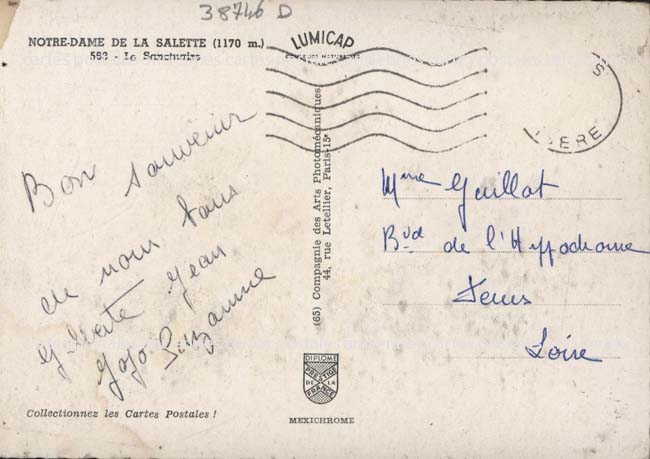 38746 D
NOTRE-DAME DE LA SALETTE (1170 m.)
563 - Le Sanctuaire
LUMICAP
ISERE
Bon souvenir
de nous tous
Gilberte Jean
Gogo Suzanne
(65) Compagnie des Arts Photomécaniques
44, rue Letellier, Paris-15e
Mme Guillat
Bvd de l'Hyppodrome
Feurs
Loire
DIPLOME
PRESTIGE
DE LA
FRANCE
Collectionnez les Cartes Postales !
MEXICHROME